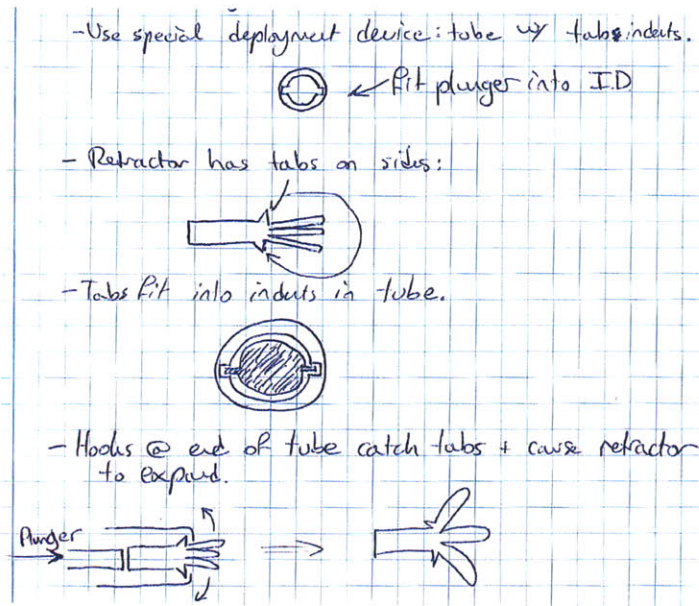 -Use special deployment device: tube w/ tabs indents.
fit plunger into I.D
- Retractor has tabs on sides:
-Tabs fit into indents in tube.
-Hooks @ end of tube catch tabs + cause retractor
to expand.
Plunger